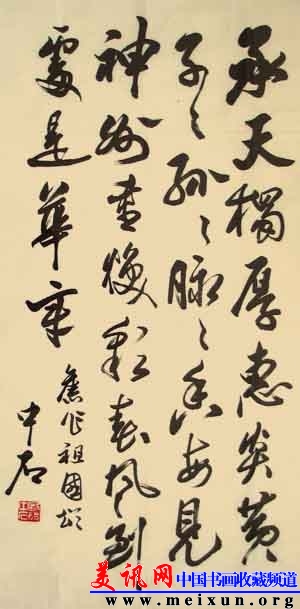 承天獨厚惠炎黄
子々孫々脉々香每見
神州書焕彩春風到
處是華章
舊作祖國頌
中石
美讯网 中国书画收藏频道
www.meixun.org